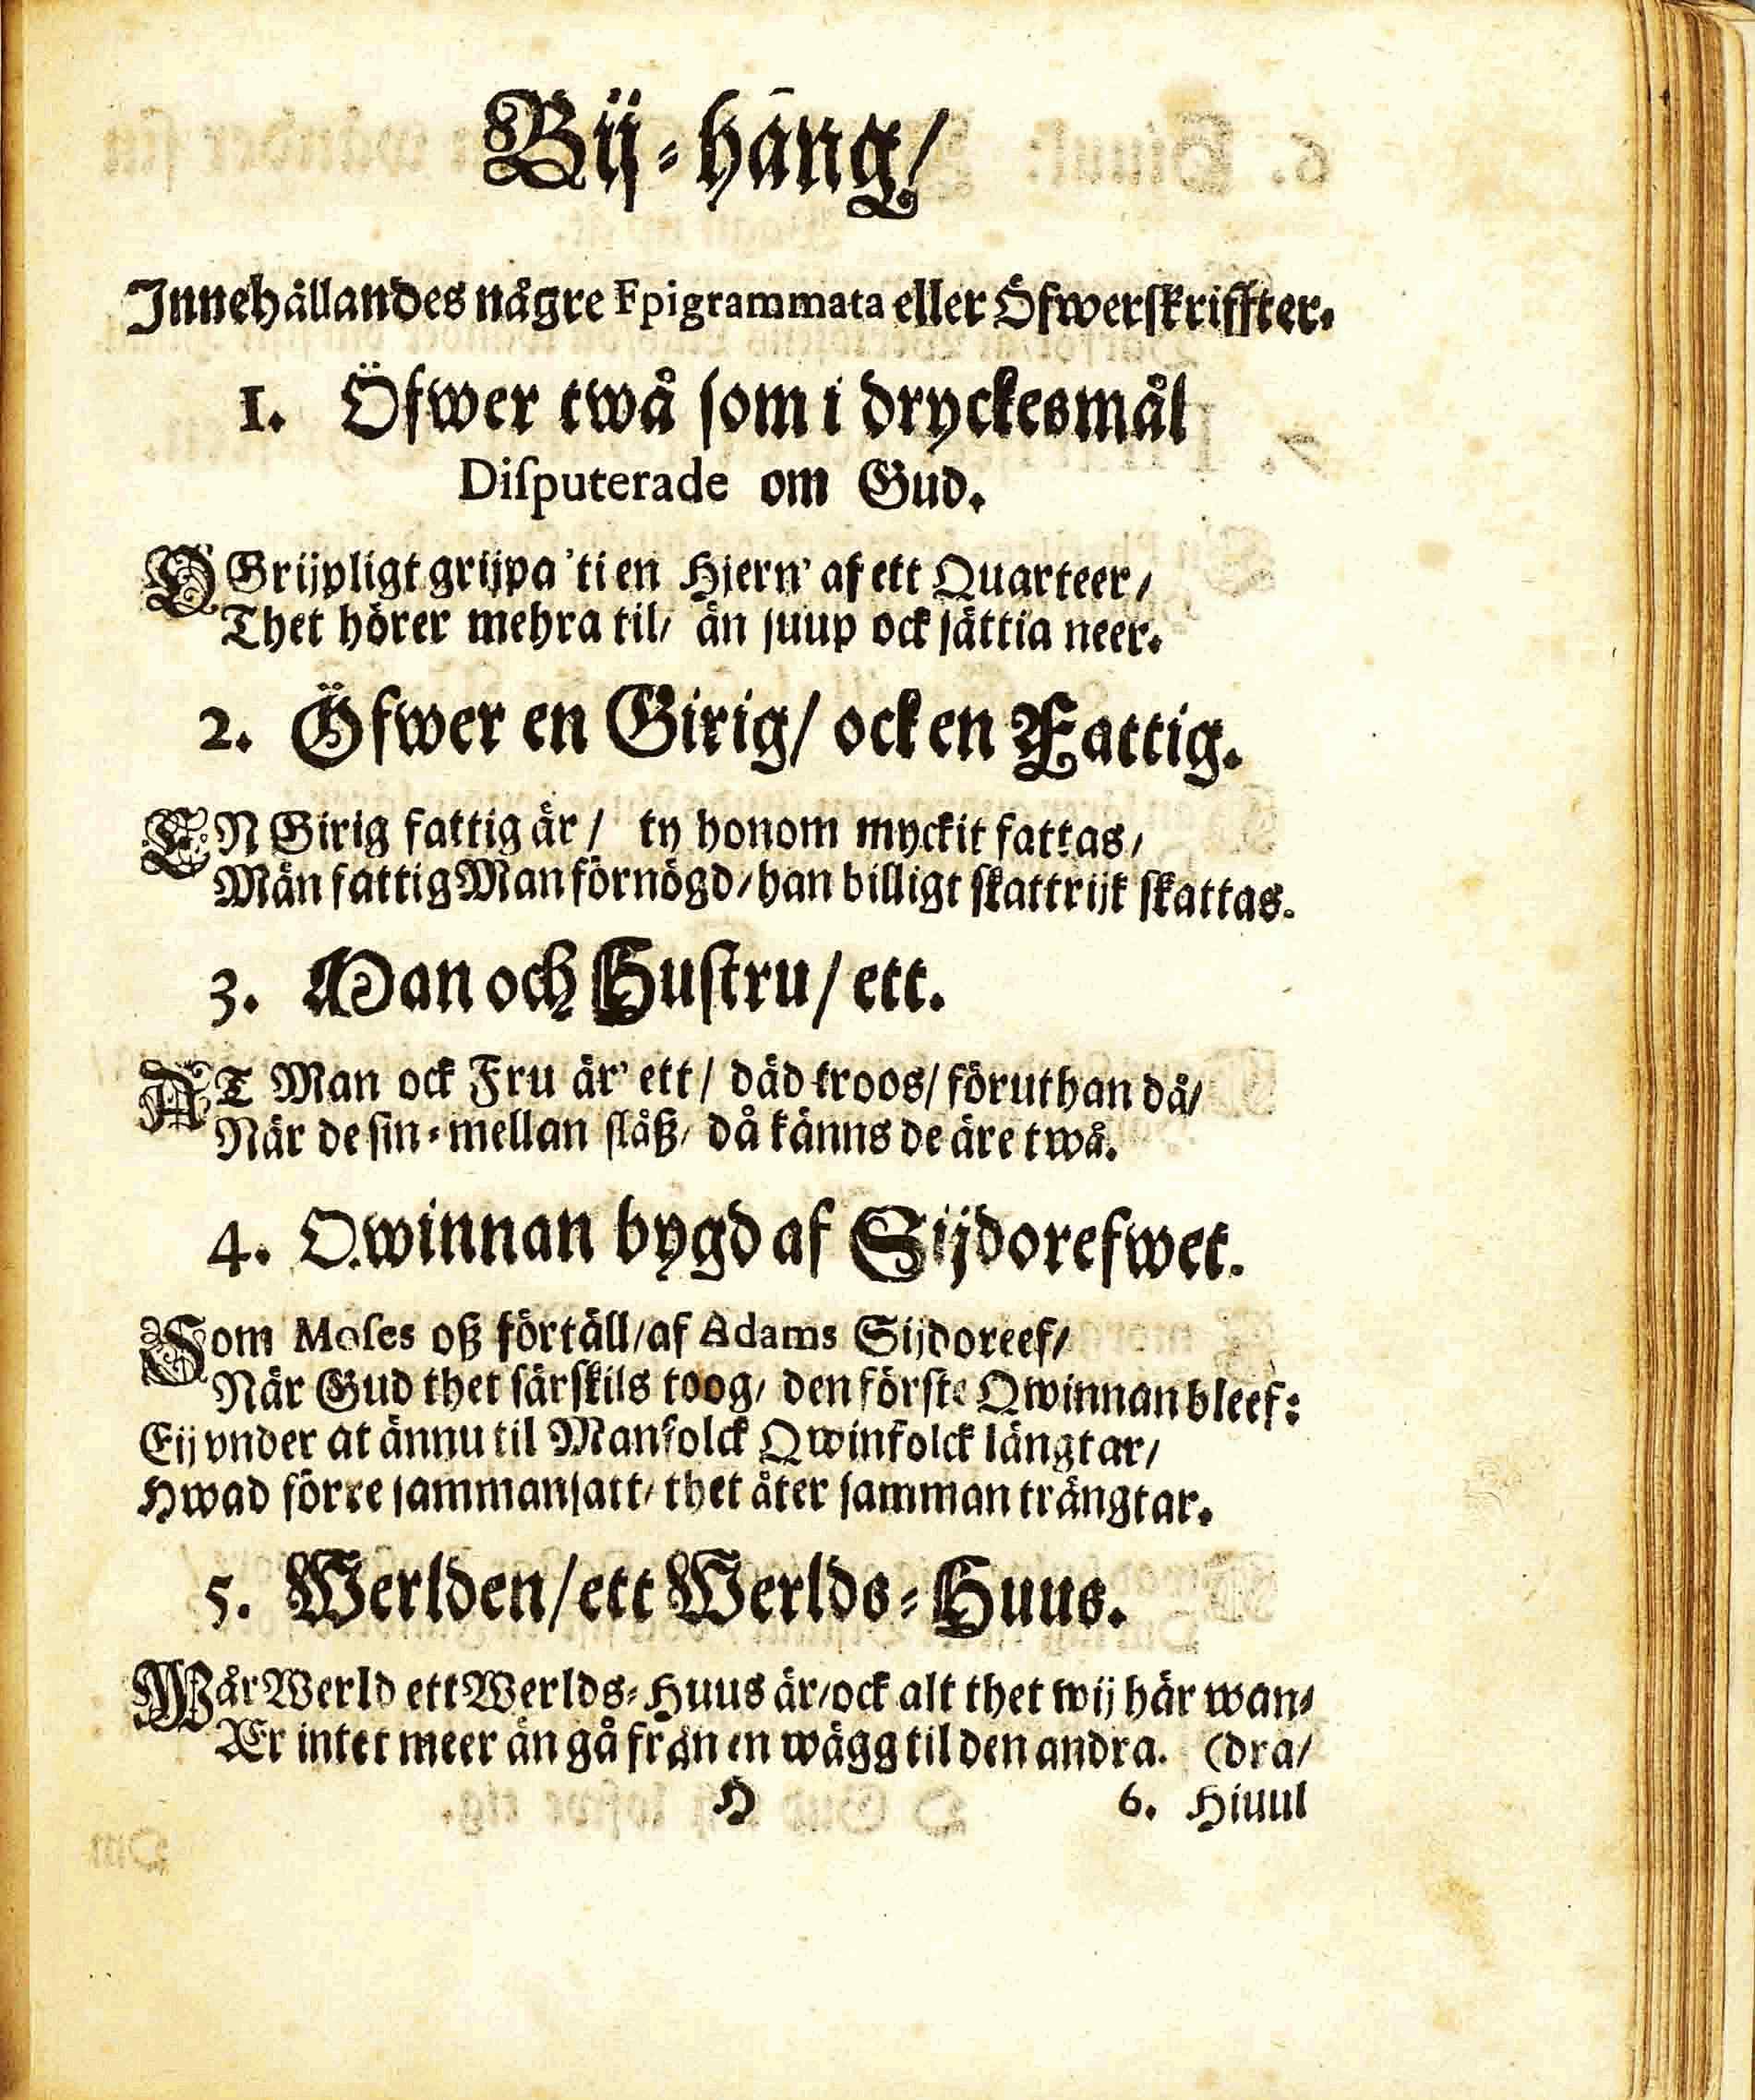 Bij-hång/
Innehållandes någre Fpigrammata eller Öfwerskriffter.
1. Öfwer twå som i dryckesmål
Disputerade om Gud.
OGrijpligt grijpa 'ti en Hjern' af ett Quarteer/
Thet hörer mehra til/ än suup ock sättia neer.
2. Öfwer en Girig/ ock en Fattig.
EN Girig fattig är/ ty honom myckit fattas/
Män fattig Man förnögd/ han billigt skattrijk skattas.
3. Man och Hustru/ ett.
AT Man ock Fru är' ett/ däd troos/ föruthan då/
När de sin-mellan slåß/ då känns de äre twå.
4. Qwinnan bygd af Sijdorefwet.
Som Moses oß förtäll/ af Adams Sijdoreef/
När Gud thet särskils toog/ den förste Qwinnan bleef:
Eij vnder at ännu til Manfolck Qwinfolck längtar/
Hwad förre sammansatt/ thet åter samman trängtar.
5. Werlden/ ett Werlds-Huus.
Wår Werld ett Werlds-Huus är/ ock alt thet wij här wan-
Är intet meer än gå från en wägg til den andra. (dra/
H 6. Hiuul